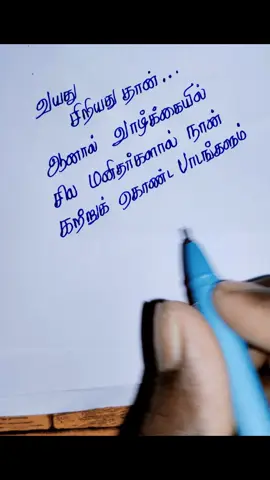 வயது
சிறியது தான்...
ஆனால் வாழ்க்கையில்
சில மனிதர்களால் நான்
கற்றுக் கொண்ட பாடங்களும்